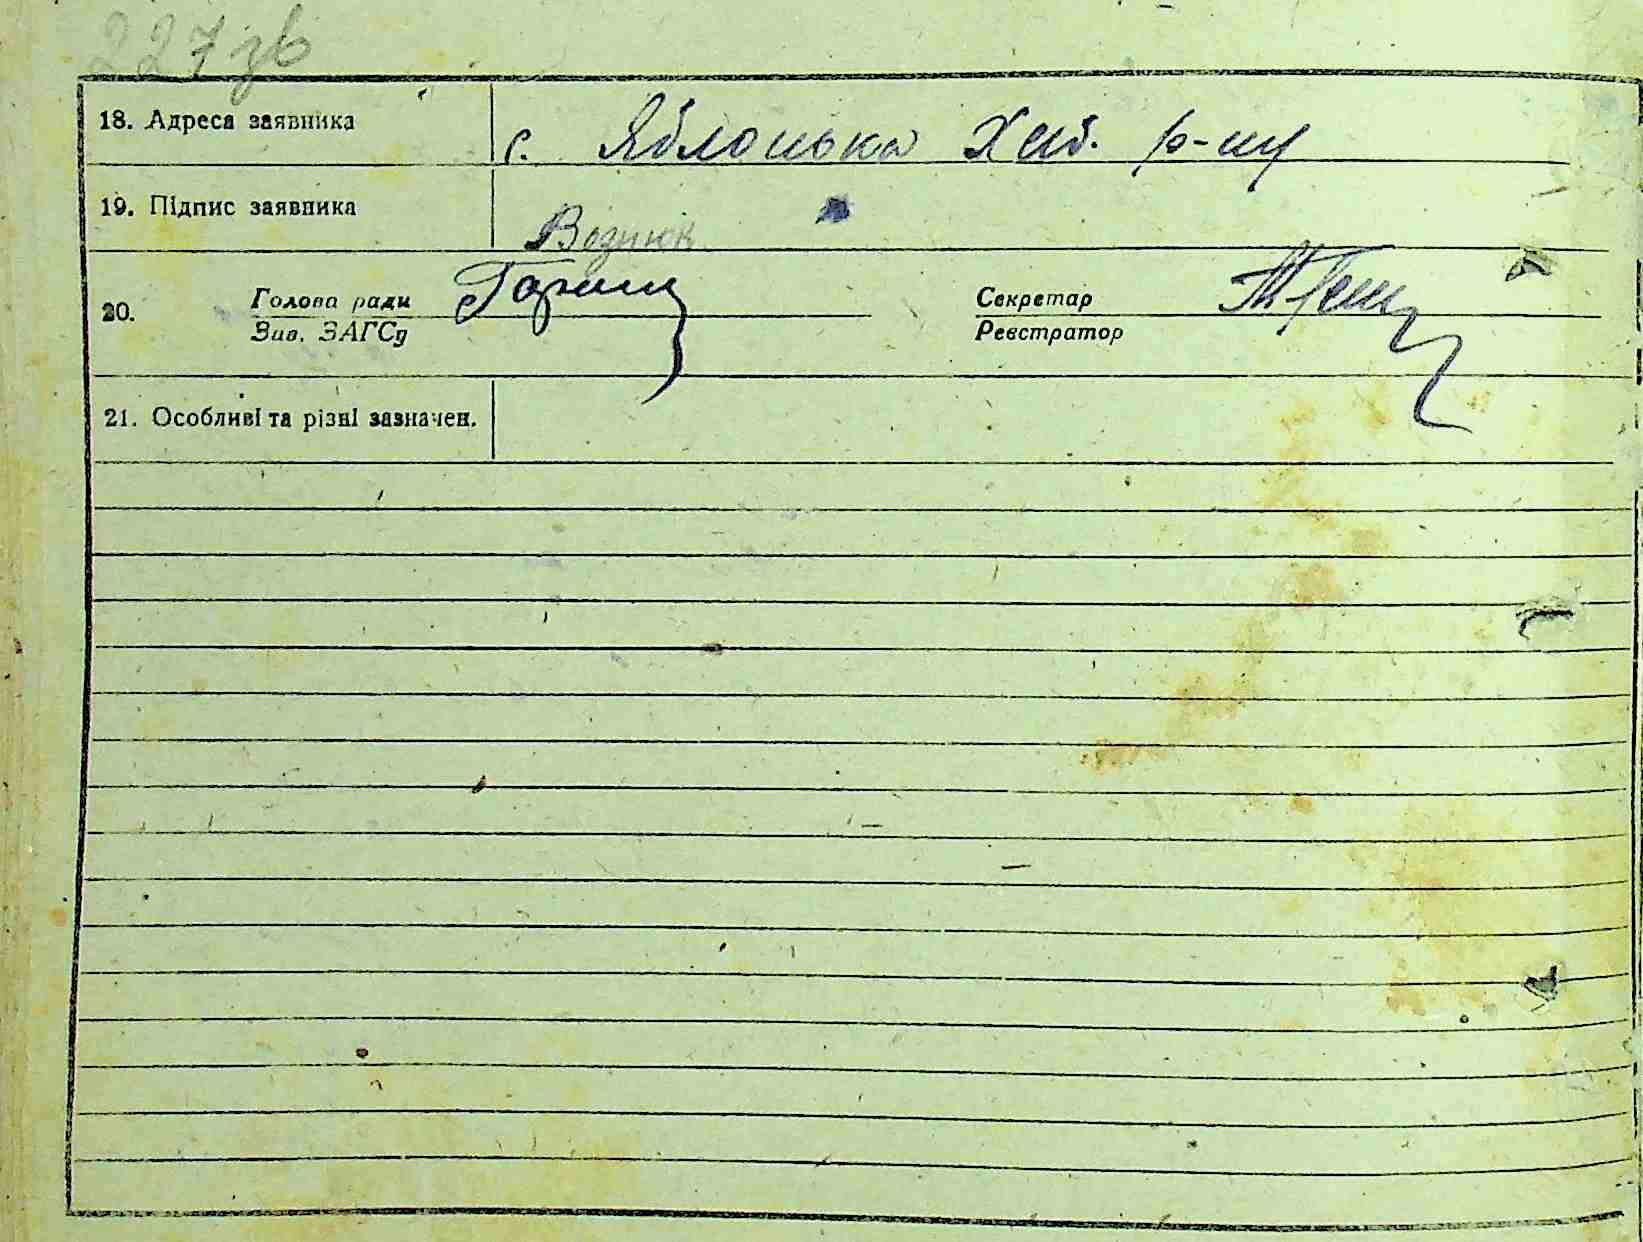 227 зв
18. Адреса заявника с. Яблонька Хаб. р-ну
19. Підпис заявника Вознюк
Голова ради Секретар
20.
Зав. ЗАГСу Реєстратор
21. Особливі та різні зазначен.